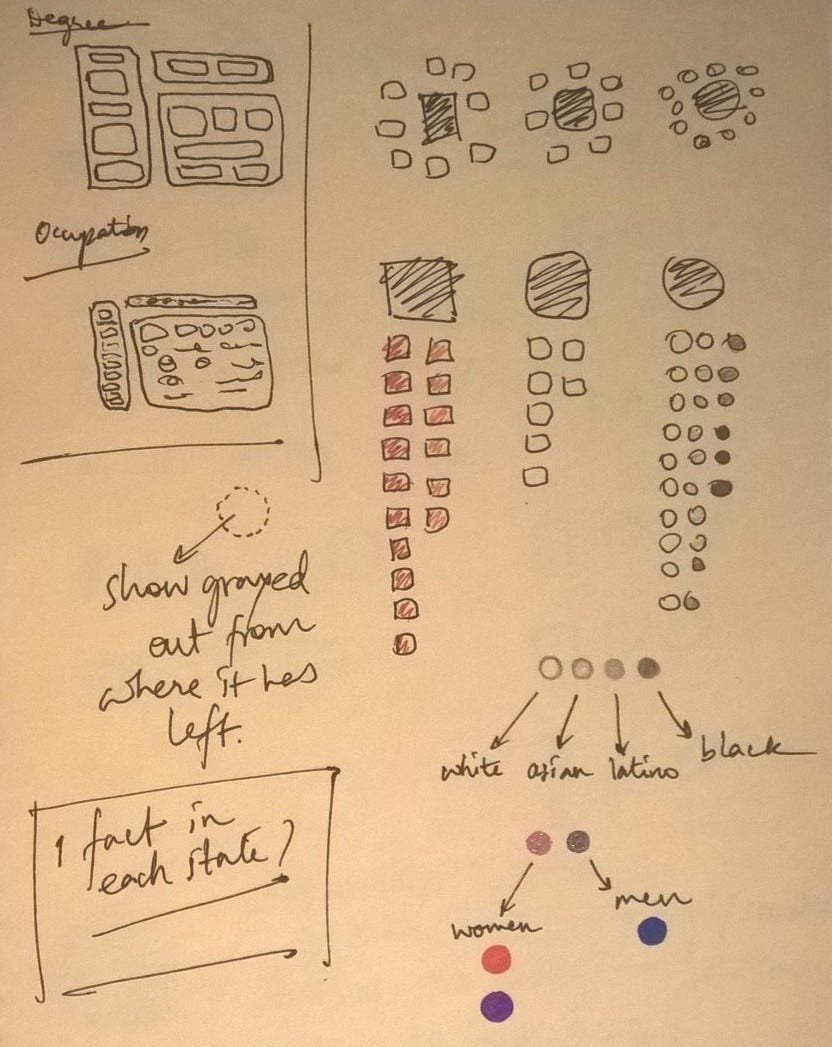 Degree
Occupation
show grayed
out from
where it has
left.
1 fact in
each state?
white asian latino black
women men